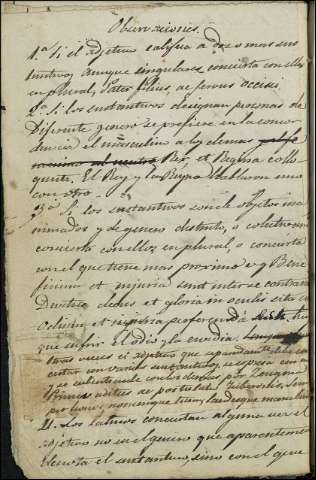 Observaciones.
1.a Si el adjetivo califica a dos o mas sus
tantivos, aunque singulares concierta con ellos
en plural, Pater filius ac servus occisi
2.a Si los sustantivos designan personas de
Diferente genero se prefiere en la concor
dancia el masculino a los demas
Rex, et Regina collo
quuti. El Rey y la Reyna Hablaron uno
con otro.
3.a Si los sustantivos son de objetos ina
nimados y de genero distinto, o colectivo no
concierta con ellos en plural, o concierta
con el que tiene mas proximo v g Bene
ficium et injuria sunt inter se contraria
Divitiae decus et gloria in oculis sita
Odium et injuria perferenda
que sufrir el odio y la envidia.
tras veces el adjetivo que
con varios sustantivos, se espresa con
se subentiende con los demas por Zeugma
4. Los latinos conciertan alguna vez el
adjetivo no en el genero que aparentemente
Denota el sustantivo, sino con el que